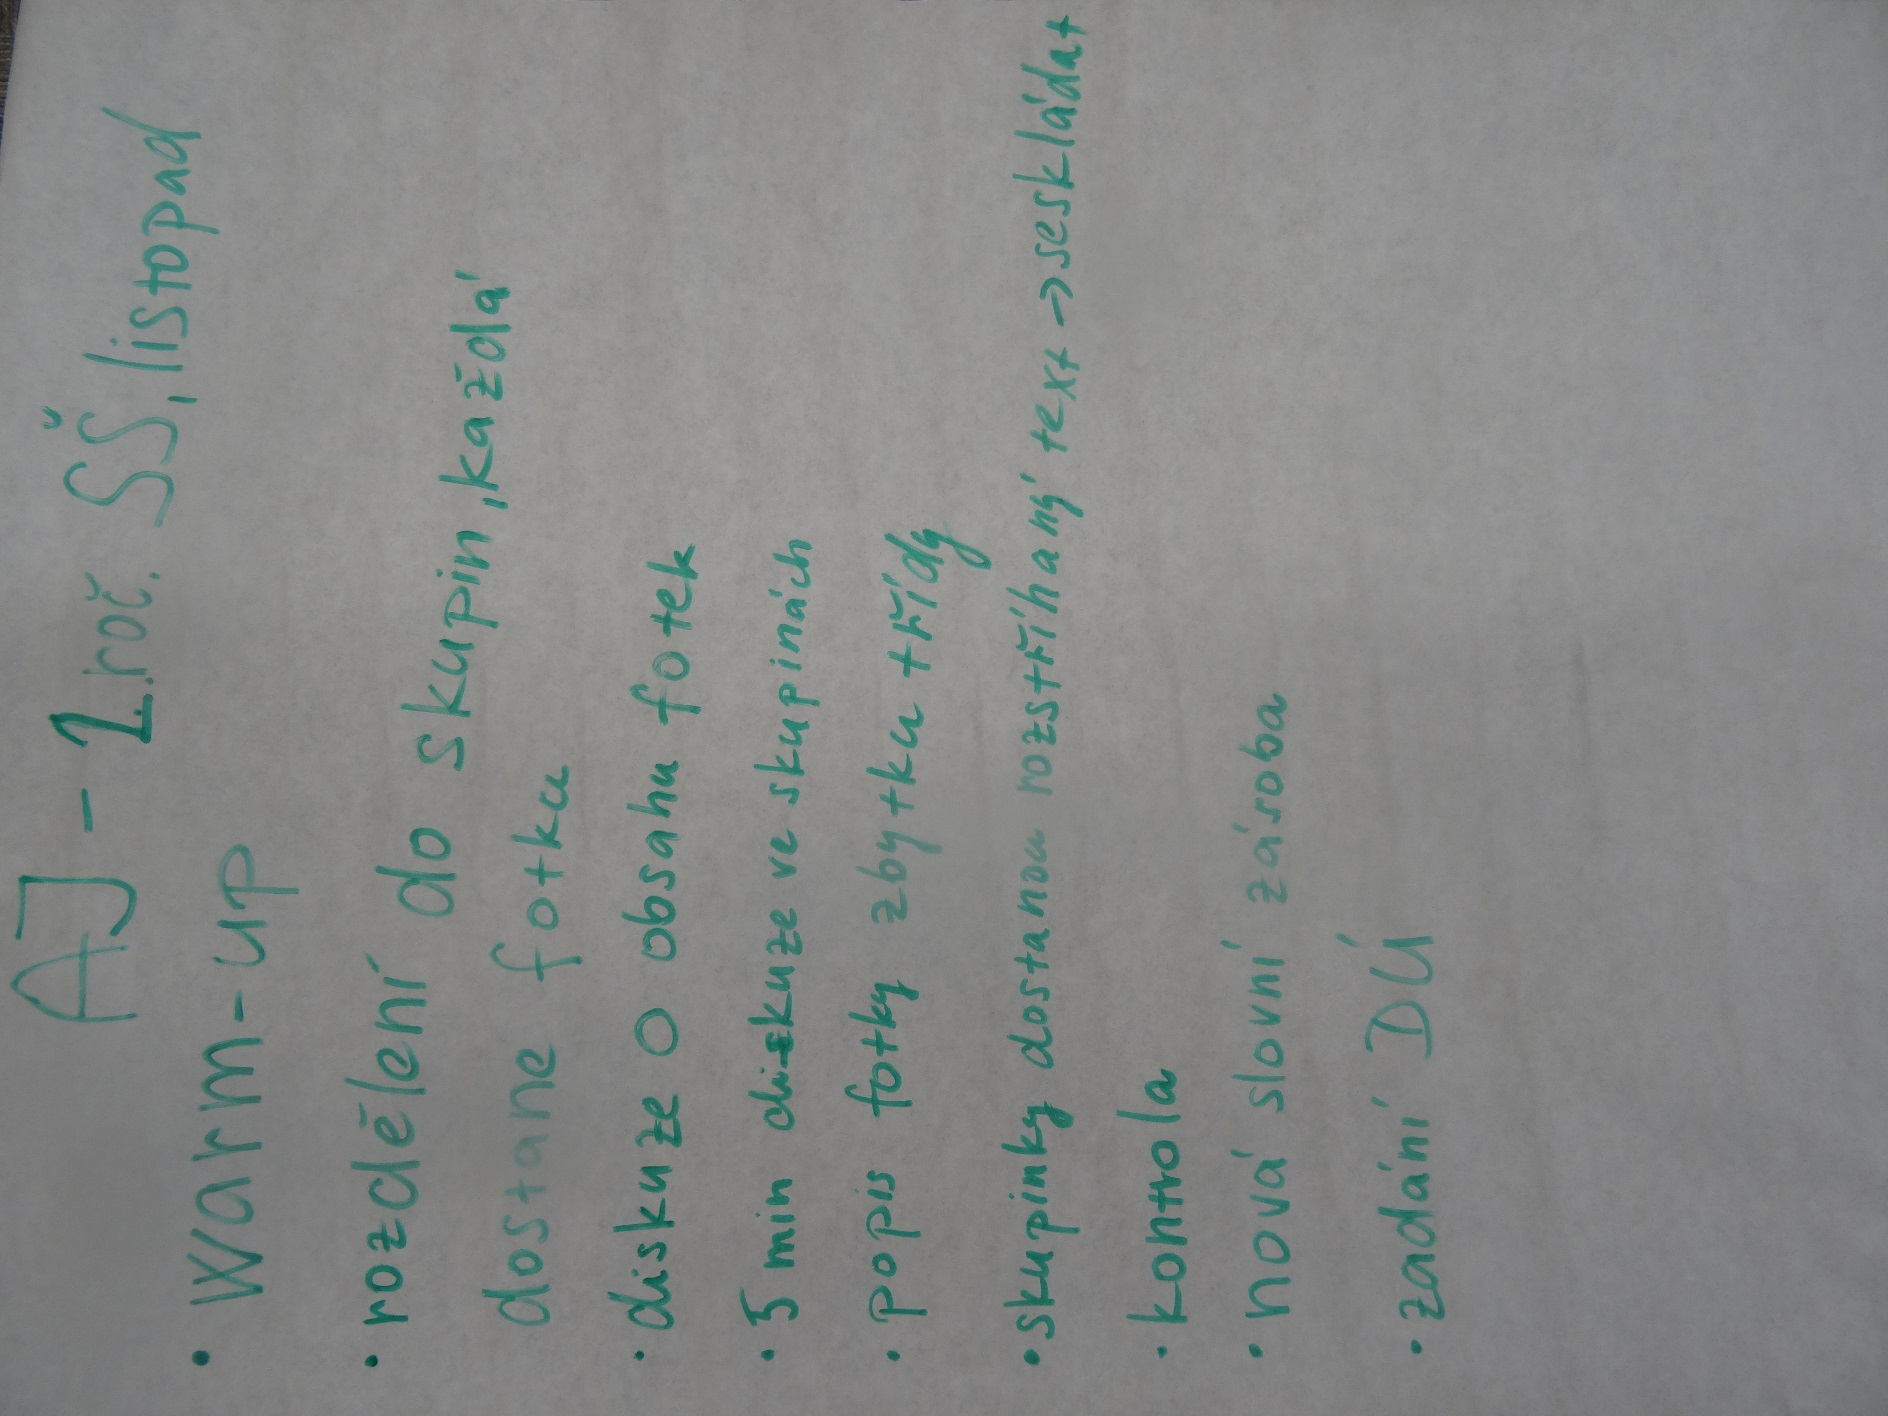 AJ - 1. roč. SŠ, listopad
• Warm-up
• rozdělení do skupin, každá
dostane fotku
• diskuze o obsahu fotek
• 5 min diskuze ve skupinách
• popis fotky zbytku třídy
• skupinky dostanou rozstříhaný text → seskládat
• kontrola
• nová slovní zásoba
• zadání DÚ